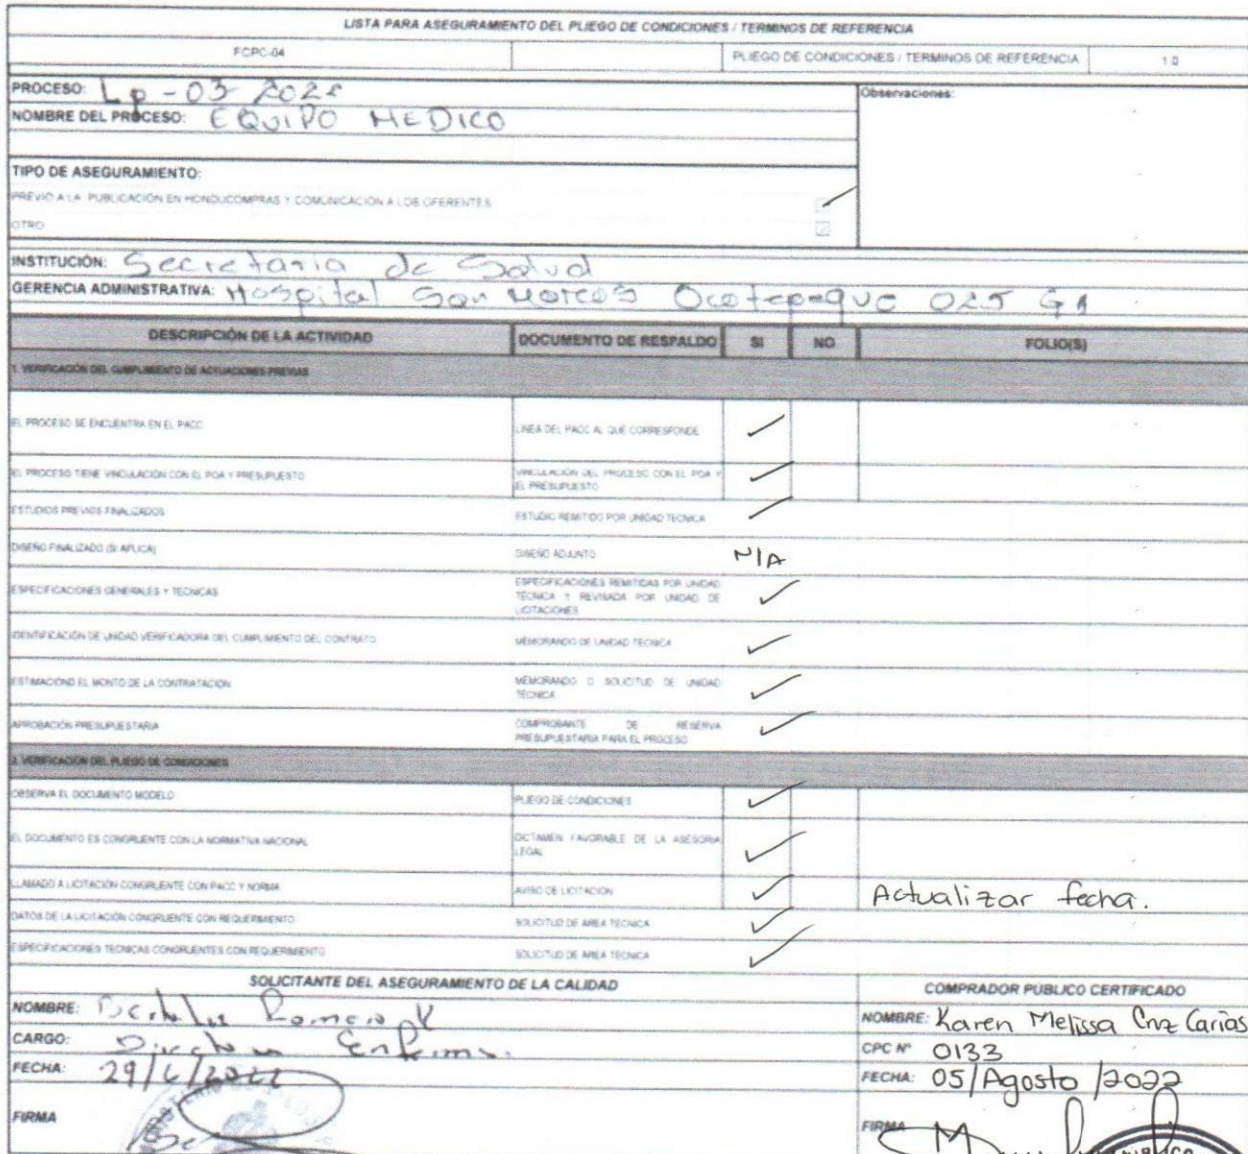 LISTA PARA ASEGURAMIENTO DEL PLIEGO DE CONDICIONES / TERMINOS DE REFERENCIA
FCPC-04 PLIEGO DE CONDICIONES / TERMINOS DE REFERENCIA 1.0
PROCESO: Lp-03-2022 Observaciones:
NOMBRE DEL PROCESO: EQUIPO MEDICO
TIPO DE ASEGURAMIENTO:
PREVIO A LA PUBLICACIÓN EN HONDUCOMPRAS Y COMUNICACIÓN A LOS OFERENTES
OTRO
INSTITUCIÓN: Secretaria de Salud
GERENCIA ADMINISTRATIVA: Hospital San Marcos Ocotepeque 025 GA
DESCRIPCIÓN DE LA ACTIVIDAD DOCUMENTO DE RESPALDO SI NO FOLIO(S)
1. VERIFICACIÓN DEL CUMPLIMIENTO DE ACTUACIONES PREVIAS
EL PROCESO SE ENCUENTRA EN EL PACC LINEA DEL PACC AL QUE CORRESPONDE ✓
EL PROCESO TIENE VINCULACIÓN CON EL POA Y PRESUPUESTO VINCULACIÓN DEL PROCESO CON EL POA Y EL PRESUPUESTO ✓
ESTUDIOS PREVIOS FINALIZADOS ESTUDIO REMITIDO POR UNIDAD TECNICA ✓
DISEÑO FINALIZADO (SI APLICA) DISEÑO ADJUNTO N/A
ESPECIFICACIONES GENERALES Y TECNICAS ESPECIFICACIONES REMITIDAS POR UNIDAD TÉCNICA Y REVISADA POR UNIDAD DE LICITACIONES ✓
IDENTIFICACIÓN DE UNIDAD VERIFICADORA DEL CUMPLIMIENTO DEL CONTRATO MEMORANDO DE UNIDAD TECNICA ✓
ESTIMACIOND EL MONTO DE LA CONTRATACION MEMORANDO O SOLICITUD DE UNIDAD TECNICA ✓
APROBACIÓN PRESUPUESTARIA COMPROBANTE DE RESERVA PRESUPUESTARIA PARA EL PROCESO ✓
2. VERIFICACIÓN DEL PLIEGO DE CONDICIONES
OBSERVA EL DOCUMENTO MODELO PLIEGO DE CONDICIONES ✓
EL DOCUMENTO ES CONGRUENTE CON LA NORMATIVA NACIONAL DICTAMEN FAVORABLE DE LA ASESORIA LEGAL ✓
LLAMADO A LICITACIÓN CONGRUENTE CON PACC Y NORMA AVISO DE LICITACION ✓ Actualizar fecha.
DATOS DE LA LICITACIÓN CONGRUENTE CON REQUERIMIENTO SOLICITUD DE AREA TECNICA ✓
ESPECIFICACIONES TECNICAS CONGRUENTES CON REQUERIMIENTO SOLICITUD DE AREA TECNICA ✓
SOLICITANTE DEL ASEGURAMIENTO DE LA CALIDAD COMPRADOR PÚBLICO CERTIFICADO
NOMBRE: Romero NOMBRE: Karen Melissa Cruz Carias
CARGO: CPC Nº 0133
FECHA: 29/6/2022 FECHA: 05/Agosto/2022
FIRMA FIRMA